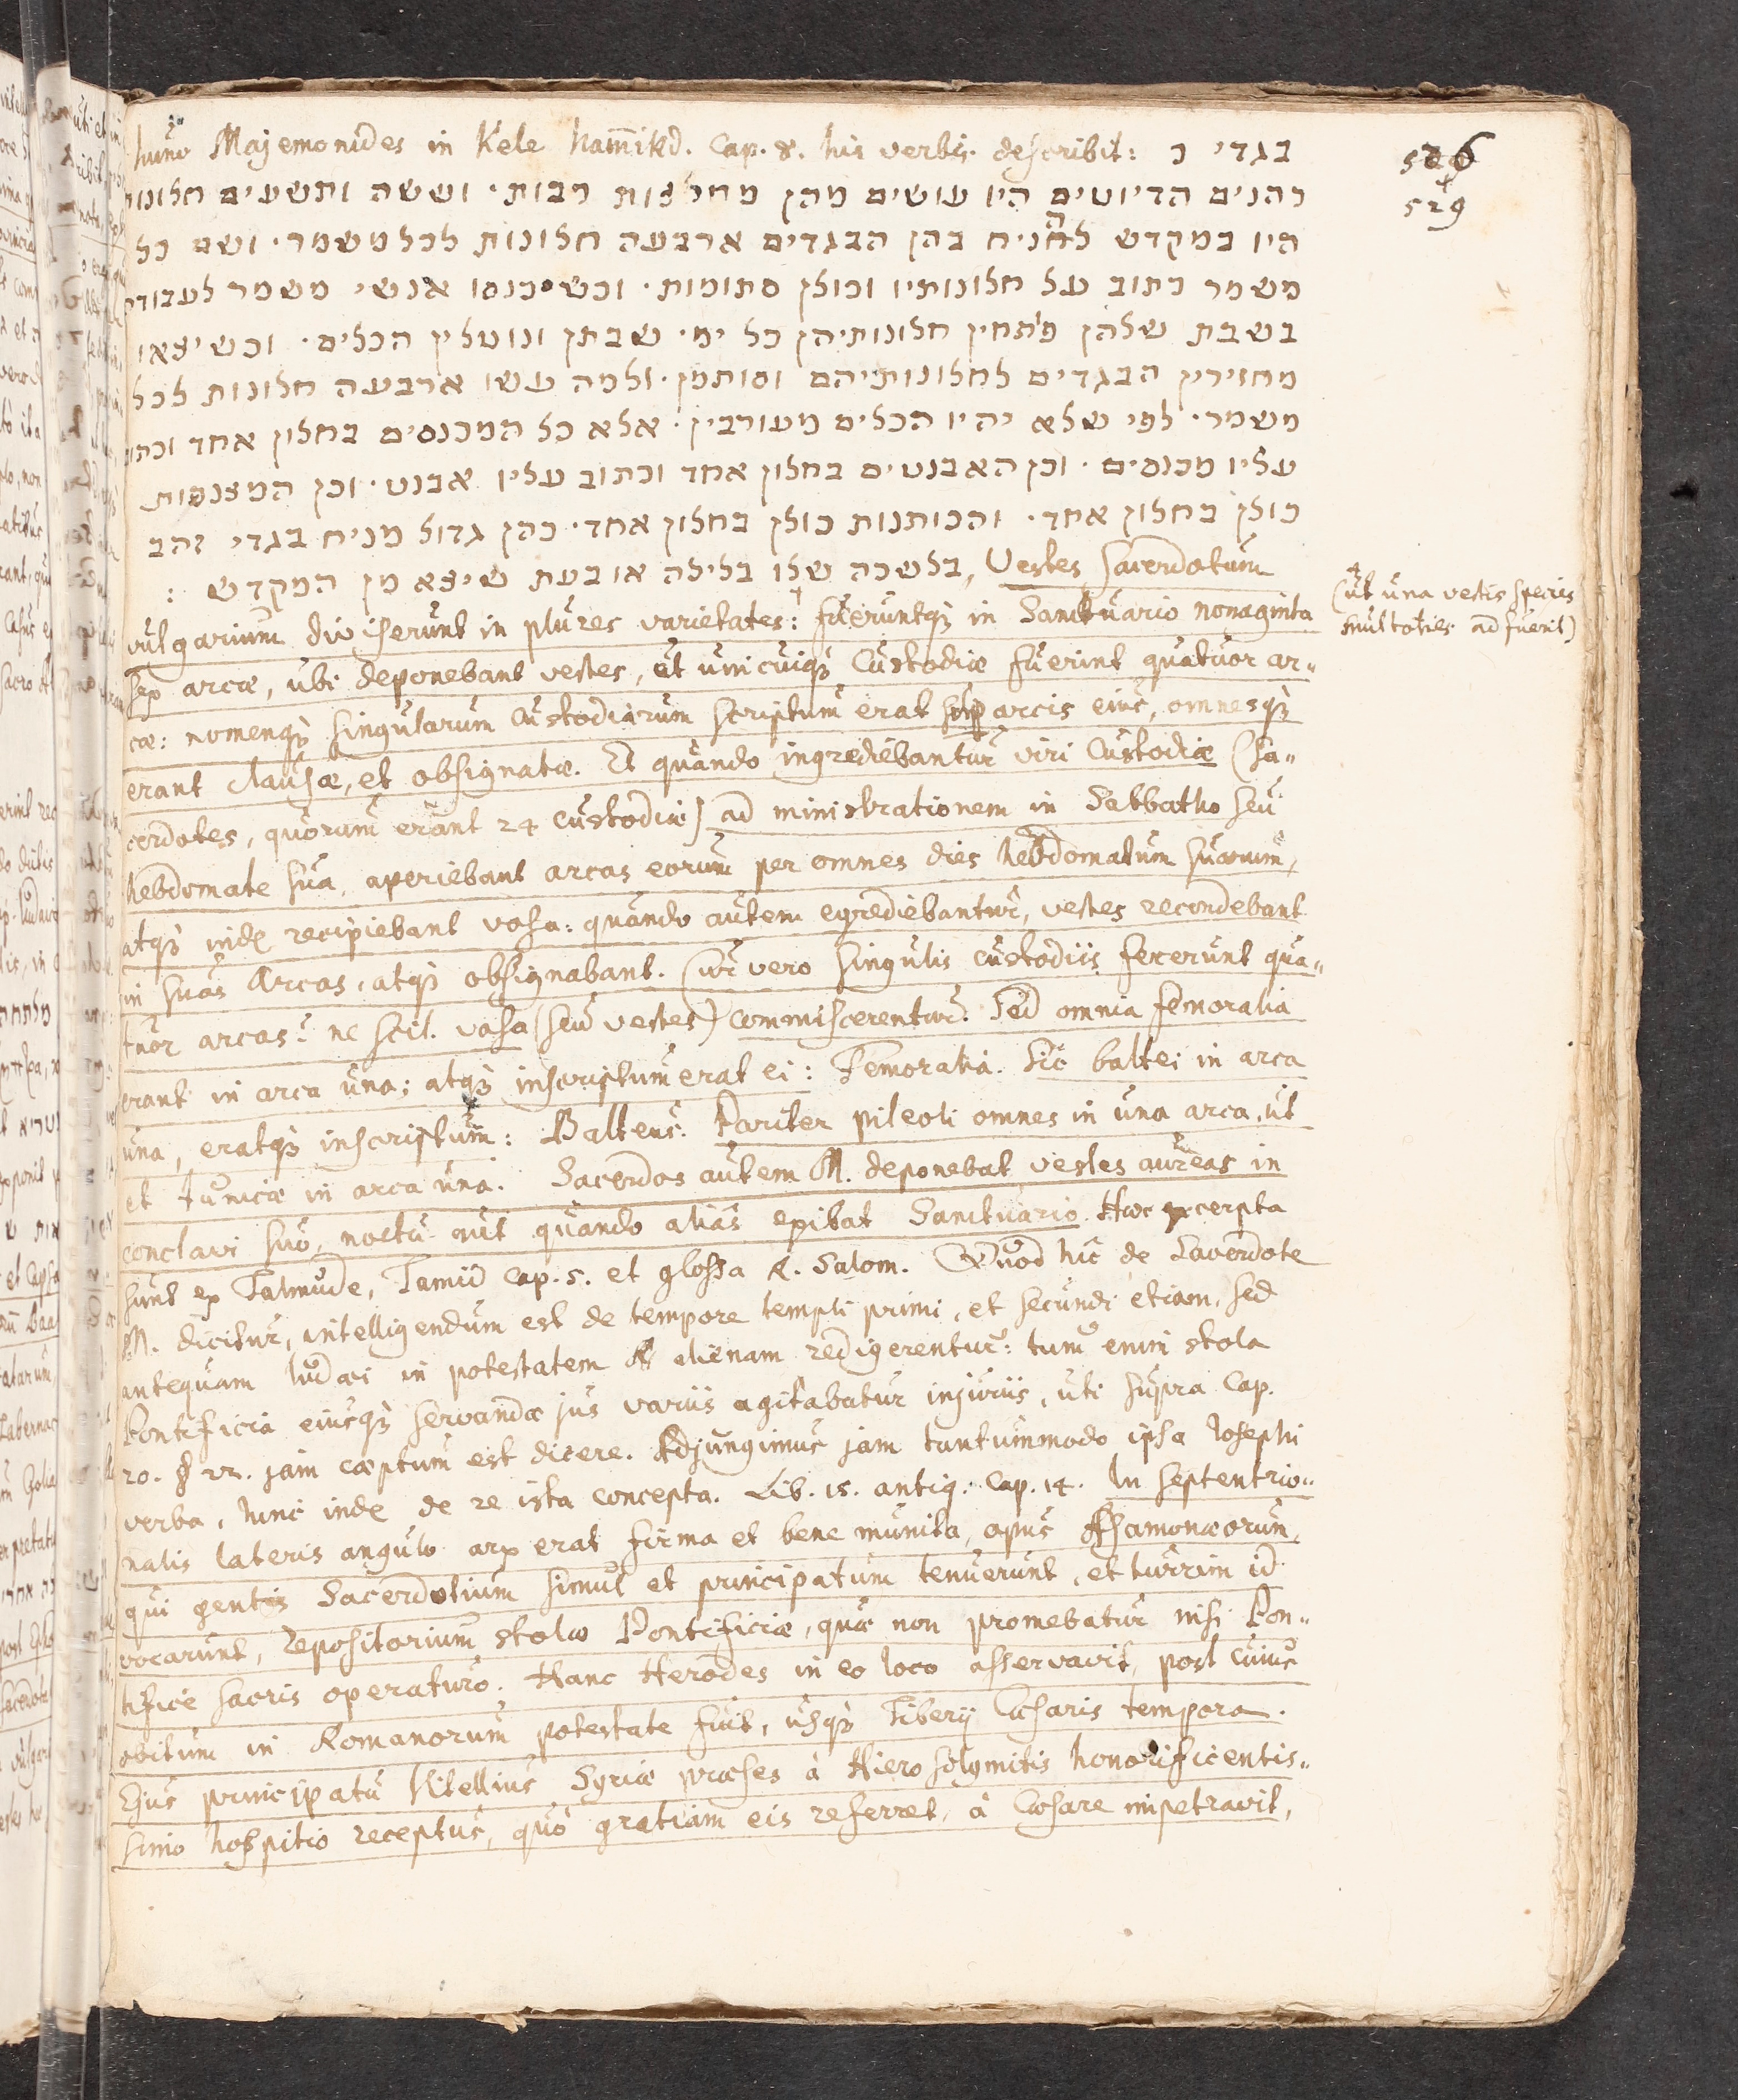 hunc Majemonides in Kele Hamikd. Cap. 8. his verbis describit: בגדי כ
כהנים הדיוטים היו עושים מהן מחלצות רבות· וששה ותשעים חלונות
היו במקדש להניח בהן הבגדים ארבעה חלונות לכל משמר· ושם כל
משמר כתוב על חלונותיו וכולן סתומות· וכשיכנסו אנשי משמר לעבודה
בשבת שלהן פתחין חלונותיהן כל ימי שבתן ונוטלין הכלים· וכשיצאו
מחזירין הבגדים לחלונותיהם וסותמן· ולמה עשו ארבעה חלונות לכל
משמר· לפי שלא יהיו הכלים מעורבין· אלא כל המכנסים בחלון אחד וכתוב
עליו מכנסים· וכן האבנטים בחלון אחד וכתוב עליו אבנט· וכן המצנפות
כולן בחלון אחד· והכותנות כולן בחלון אחד· כהן גדול מניח בגדי זהב
בלשכה שלו בלילה או בעת שיצא מן המקדש : Vestes sacerdotum
vulgarium diviserunt in plures varietates: † fueruntq; in Sanctuario nonaginta
sex arcæ, ubi deponebant vestes, ut unicuiq; Custodiæ fuerint quatuor ar-
cæ: nomenq; singularum Custodiarum scriptum erat sup arcis eius, omnesq;
erant clausæ, et obsignatæ. Et quando ingrediebantur viri Custodiæ (Sa-
cerdotes, quorum erant 24 custodiæ) ad ministrationem in Sabbatho seu
hebdomate sua, aperiebant arcas eorum per omnes dies hebdomatum suarum,
atq; inde recipiebant vasa: quando autem egrediebantur, vestes recondebant
in suas Arcas, atq; obsignabant. Cur vero singulis custodiis fecerunt qua-
tuor arcas? ne scil. vasa (seu vestes) commiscerentur. Sed omnia femoralia
erant in arca una; atq; inscriptum erat ei: Femoralia. Sic baltei in arca
una, eratq; inscriptum: Balteus. Pariter pileoli omnes in una arca, ut
et tunicæ in arca una. Sacerdos autem M. deponebat vestes aureas in
conclavi suo, noctu aut quando alias exibat Sanctuario. Hæc excerpta
sunt ex Talmude, Tamid cap. 5. et glossa R. Salom. Quod hic de Sacerdote
M. dicitur, intelligendum est de tempore templi primi, et secundi etiam, sed
antequam Iudæi in potestatem alienam redigerentur: tum enim stola
Pontificia eiusq; servandæ jus variis agitabatur injuriis, uti supra Cap.
20. § jam cæptum est dicere. Adjungimus jam tantummodo ipsa Iosephi
verba, hinc inde de re ista concepta. Lib. 15. antiq. Cap. 14. In septentrio-
nalis lateris angulo arx erat firma et bene munita, opus Asamonæorum,
qui gentis Sacerdotium simul et principatum tenuerunt, et turrim id
vocarunt, repositorium stolæ Pontificiæ, quæ non promebatur nisi Pon-
tifice sacris operaturo. Hanc Herodes in eo loco asservavit, post cuius
obitum in Romanorum potestate fuit, usq; Tiberij Cæsaris tempora.
Ejus principatu Vitellius Syriæ præses à Hierosolymitis honorificentis-
simo hospitio receptus, quo gratiam eis referret, à Cæsare impetravit,
529
† (ut una vestis speciis
multoties adfuerit)